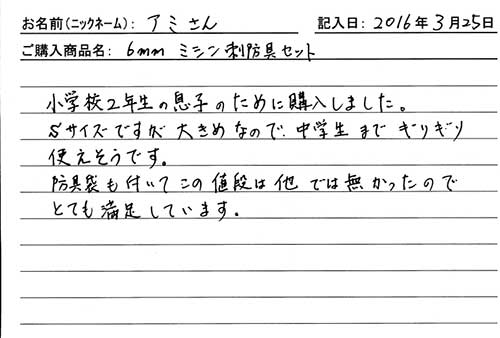 お名前(ニックネーム): アミさん 記入日: 2016年3月25日
ご購入商品名: 6mm ミシン刺防具セット
小学校2年生の息子のために購入しました。
Sサイズですが大きめなので、中学生までギリギリ
使えそうです。
防具袋も付いてこの値段は他では無かったので
とても満足しています。